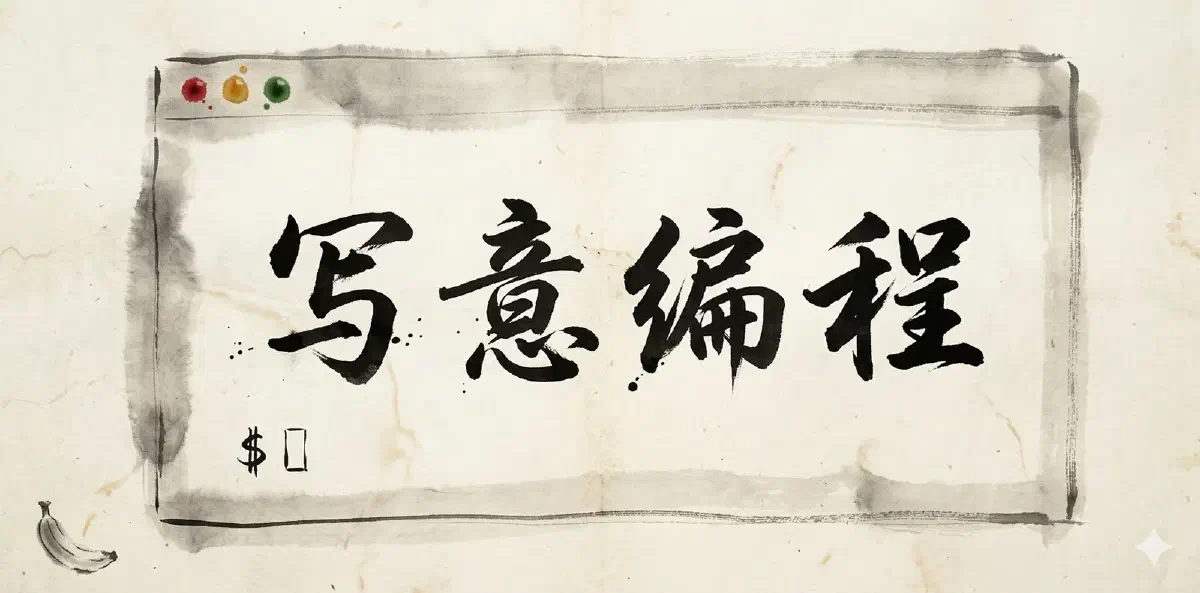 写意编程
$ ▯